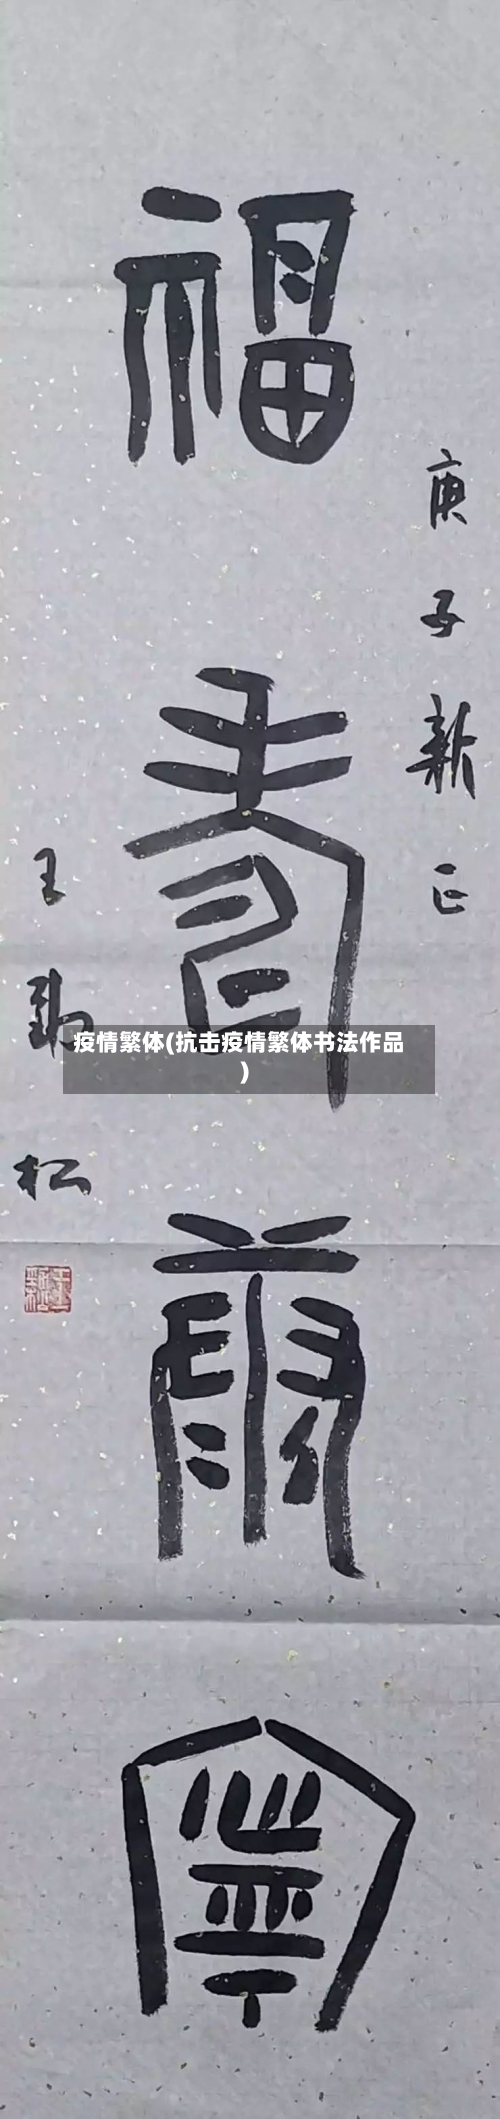 庚子新正
福壽康寧
王勁松
疫情繁体(抗击疫情繁体书法作品
)